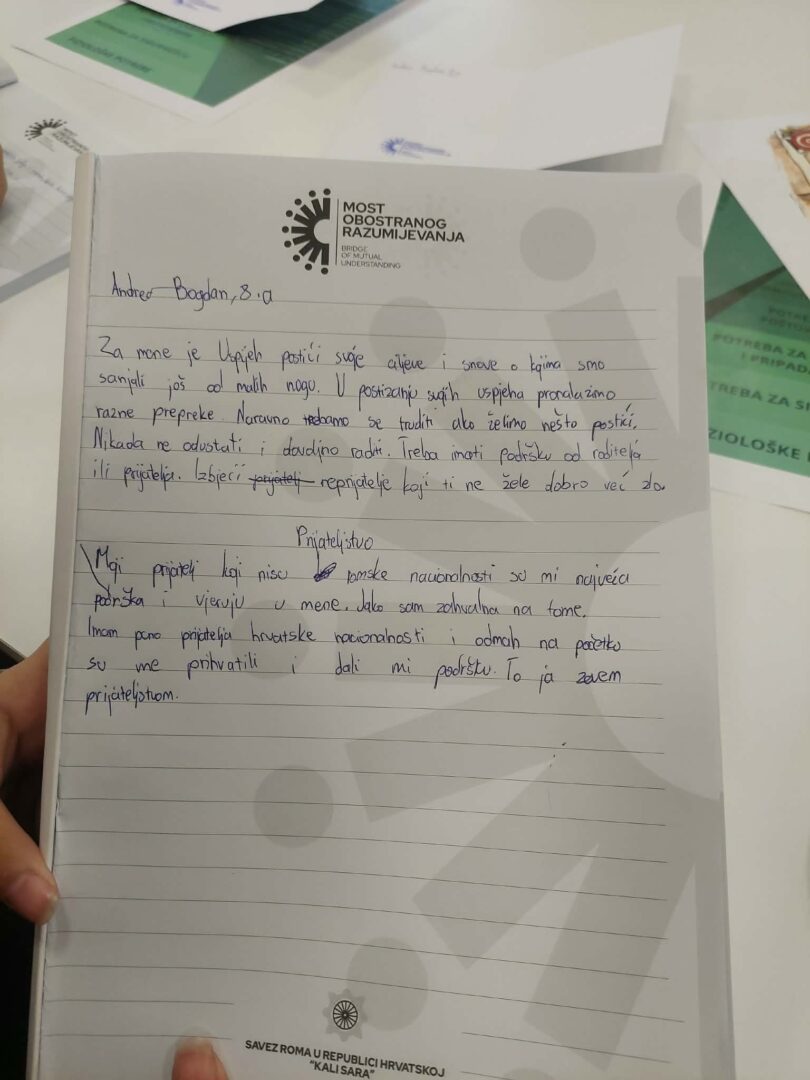 MOST
OBOSTRANOG
RAZUMIJEVANJA
BRIDGE
OF MUTUAL
UNDERSTANDING
Bogdan, 8.a
Za mene je Uspjeh postići svoje ciljeve i snove o kojima smo
sanjali još od malih nogu. U postizanju svojih uspjeha pronalazimo
razne prepreke. Naravno trebamo se truditi ako želimo nešto postići.
Nikada ne odustati i dovoljno raditi. Treba imati podršku od roditelja
ili prijatelja. Izbjeći prijatelj neprijatelje koji ti ne žele dobro već zlo.
Prijateljstvo
Moji prijatelji koji nisu romske nacionalnosti su mi najveća
podrška i vjeruju u mene. Jako sam zahvalna na tome.
Imam puno prijatelja hrvatske nacionalnosti i odmah na početku
su me prihvatili i dali mi podršku. To ja zovem
prijateljstvom.
SAVEZ ROMA U REPUBLICI HRVATSKOJ
"KALI SARA"
MOST
OBOSTRANOG
POTREBA ZA
I PRIPAD
TREBA ZA SI
ZIOLOŠKE